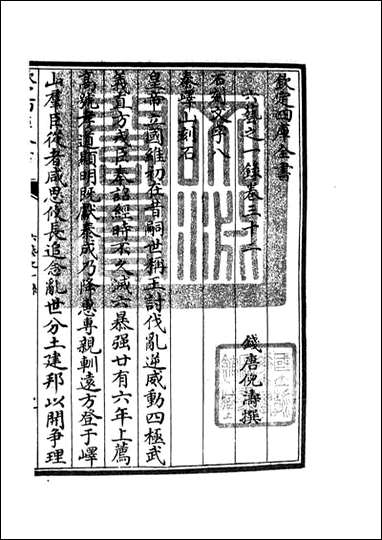 欽定四庫全書
六藝之一録卷三十二
錢唐倪濤撰
石刻文字八
秦嶧山刻石
皇帝立國維初在昔嗣世稱王討伐亂逆威動四極武
義直方戎臣奉詔經時不久滅六暴强廿有六年上薦
高號孝道顯明既獻泰成乃降惠專親䡅遠方登于嶧
山羣臣從者咸思攸長追念亂世分土建邦以開争理